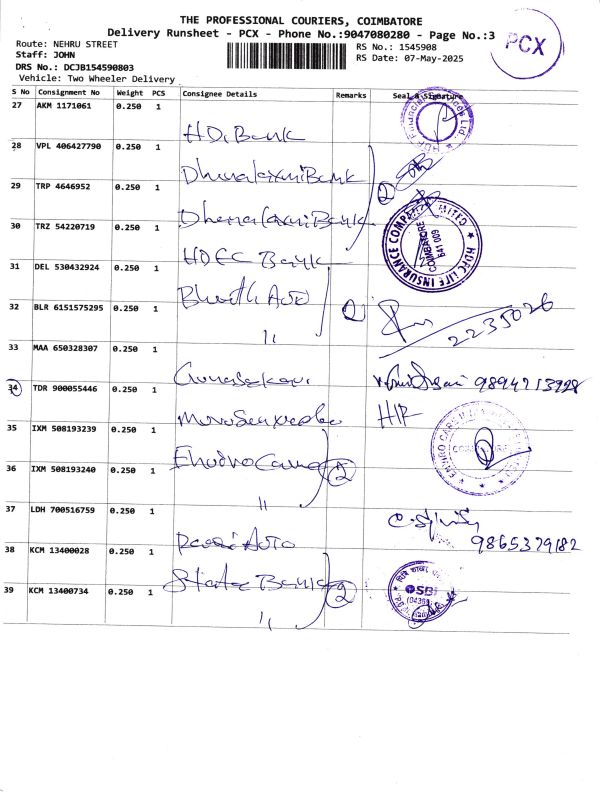 THE PROFESSIONAL COURIERS, COIMBATORE
Delivery Runsheet - PCX - Phone No.:9047080280 - Page No.:3
PCX
Route: NEHRU STREET
Staff: JOHN
DRS No.: DCJB154590803
Vehicle: Two Wheeler Delivery
RS No.: 1545908
RS Date: 07-May-2025
S No Consignment No Weight PCS Consignee Details Remarks Seal & Signature
27 AKM 1171061 0.250 1
HDB Bank
28 VPL 406427790 0.250 1
Dhanalaxmi Bank
29 TRP 4646952 0.250 1
Dhanalaxmi Bank
2
30 TRZ 54220719 0.250 1
HDFC Bank
HDFC LIFE INSURANCE COMPANY LIMITED
COIMBATORE
641 009
31 DEL 530432924 0.250 1
Bharath Auto
32 BLR 6151575295 0.250 1
"
2
2235026
33 MAA 650328307 0.250 1
Gunasekari
9894213928
34 TDR 900055446 0.250 1
H/F
35 IXM 508193239 0.250 1
Enviro Care
36 IXM 508193240 0.250 1
"
2
37 LDH 700516759 0.250 1
Auto
9865379182
38 KCM 13400028 0.250 1
State Bank
39 KCM 13400734 0.250 1
"
2
SBI